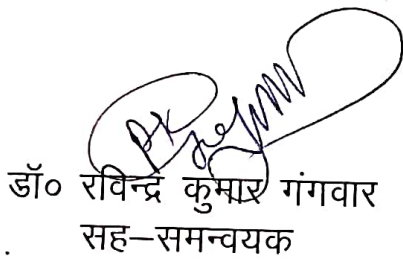 डॉ० रविन्द्र कुमार गंगवार
सह–समन्वयक